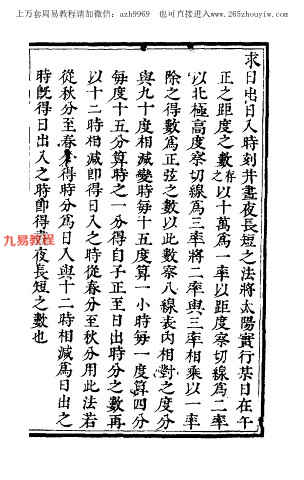 上万套周易教程请加微信：azh9969 也可直接进入www.265zhouyiw.com
求日出日入時刻并晝夜長短之法將太陽實行某日在午
正之距度之數以十萬爲一率以距度察切線爲二率
以北極高度察切線爲三率將二率與三率相乘以一率
除之得數爲正弦之數以此數察八線表內相對之度分
與九十度相減變時每十五度算一小時每一度算四分
每度十五分算時之一分得自子正至日出時分之數再
以十二時相減卽得日入之時從春分至秋分用此法若
從秋分至春分得時分爲日入與十二時相減爲日出之
時旣得日出入之時卽得晝夜長短之數也
九易教程